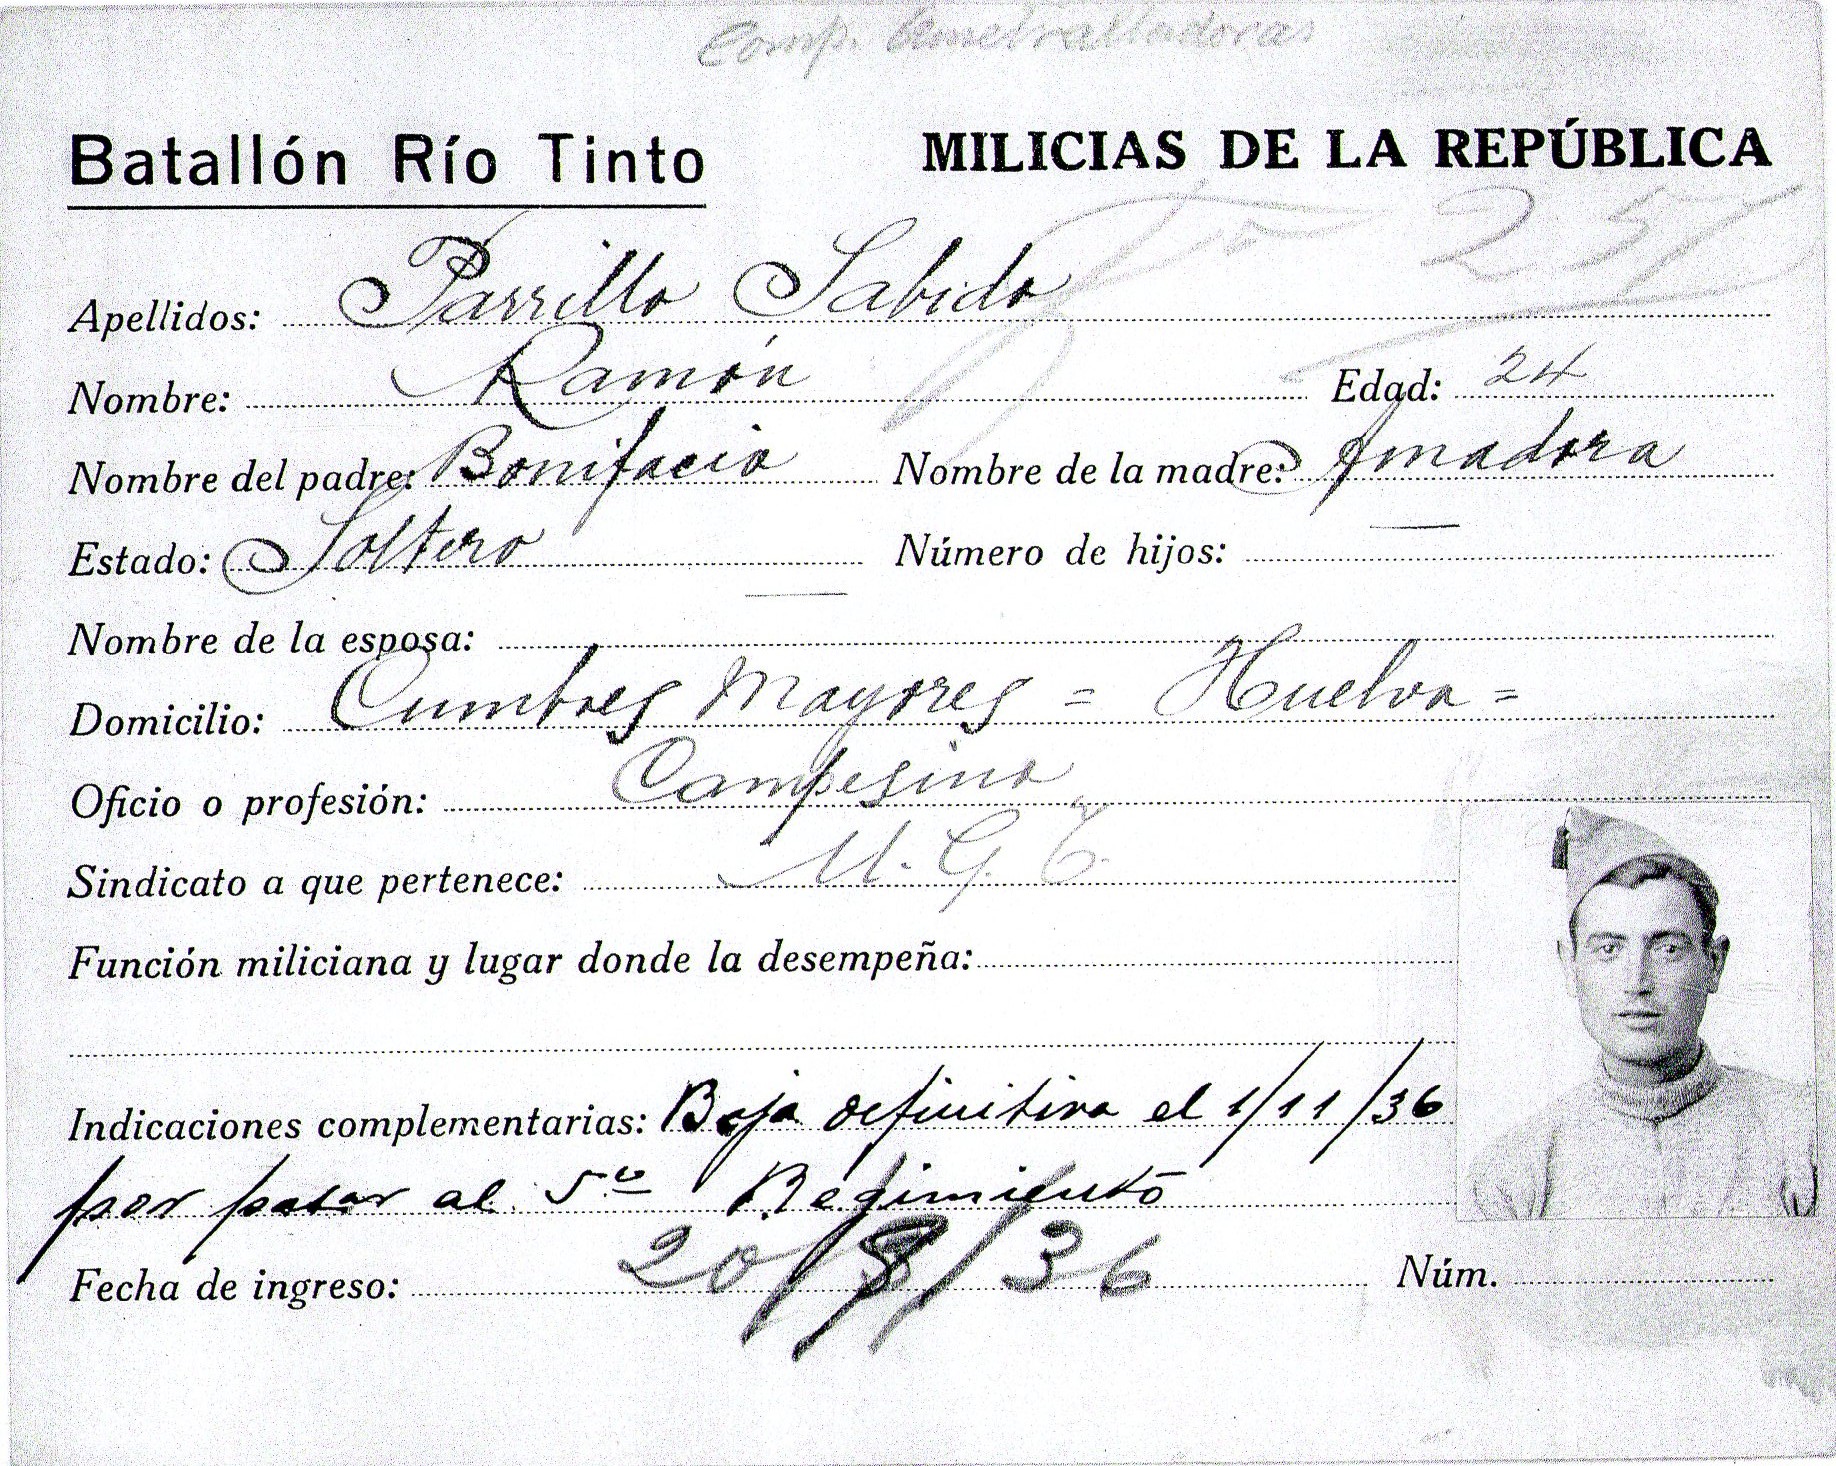 Comp. Ametralladoras
Batallón Río Tinto MILICIAS DE LA REPÚBLICA
257
Apellidos: Parrillo Sabido
Nombre: Ramón Edad: 24
Nombre del padre: Bonifacio Nombre de la madre: Amadora
Estado: Soltero Número de hijos: —
Nombre de la esposa: —
Domicilio: Cumbres Mayores = Huelva =
Oficio o profesión: Campesino
Sindicato a que pertenece: U. G. T.
Función miliciana y lugar donde la desempeña:
Indicaciones complementarias: Baja definitiva el 1/11/36
por pasar al 5º Regimiento
Fecha de ingreso: 20/8/36 Núm.